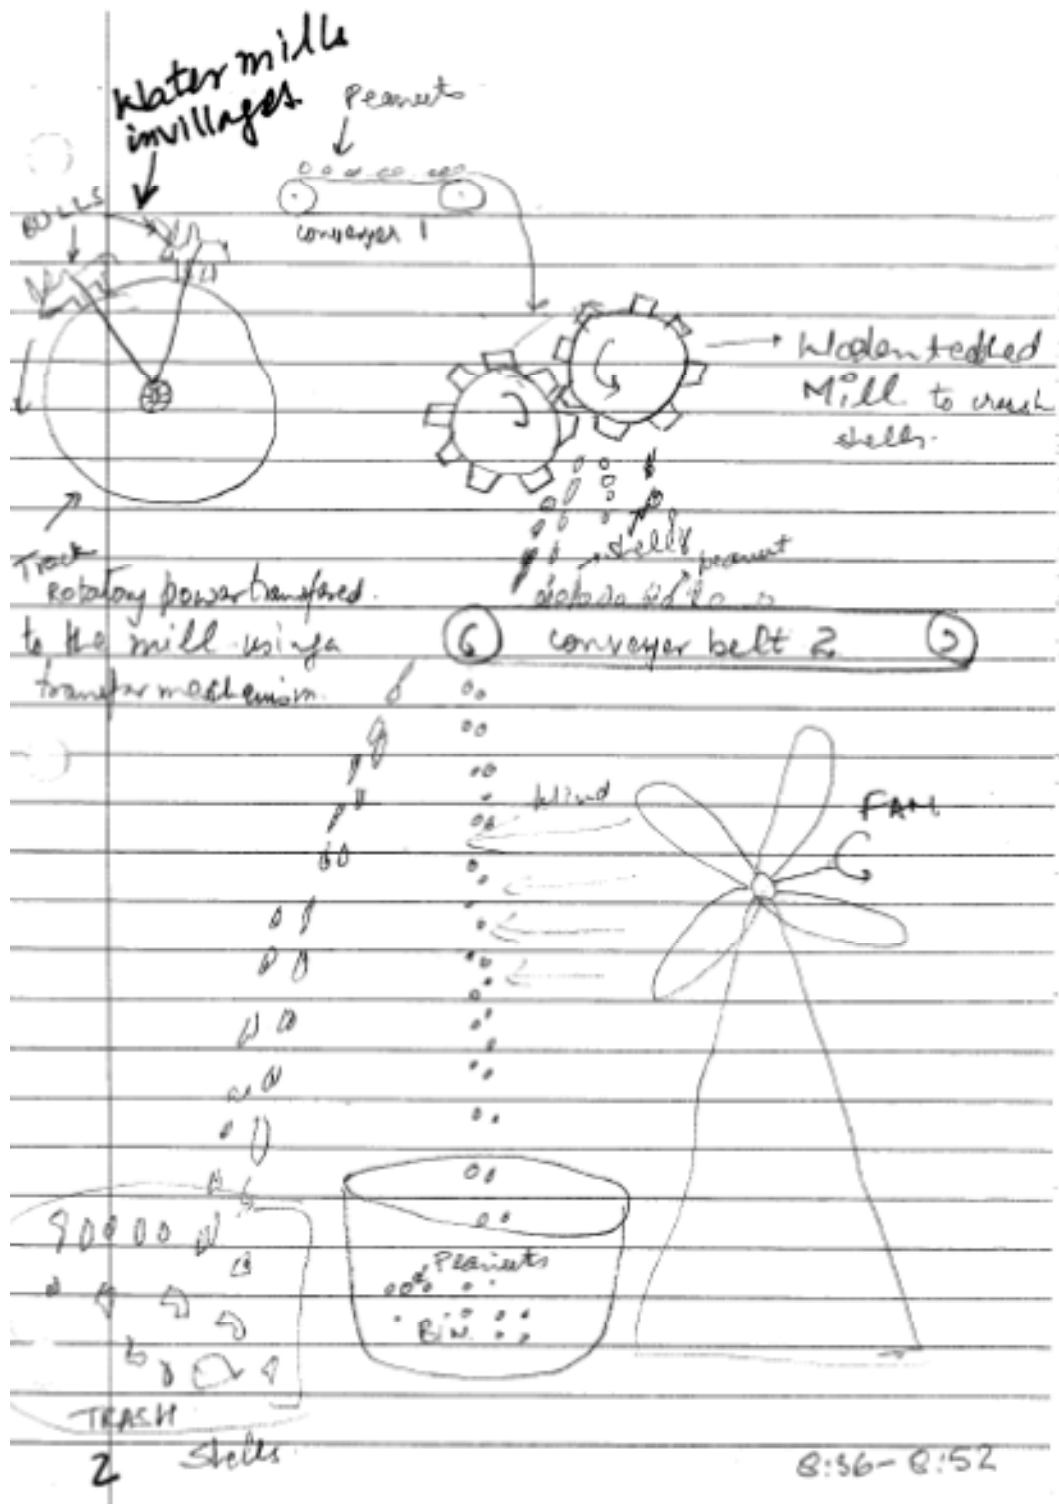 Water mills
in villages
Peanuts
BULLS
conveyer 1
Wooden toothed
Mill to crush
shells.
shells
peanut
Track
Rotatory power transfered.
to the mill using a
transfer mechanism.
conveyer belt 2
Wind
FAN
Peanuts
Bin
TRASH
Shells
2
8:36-8:52